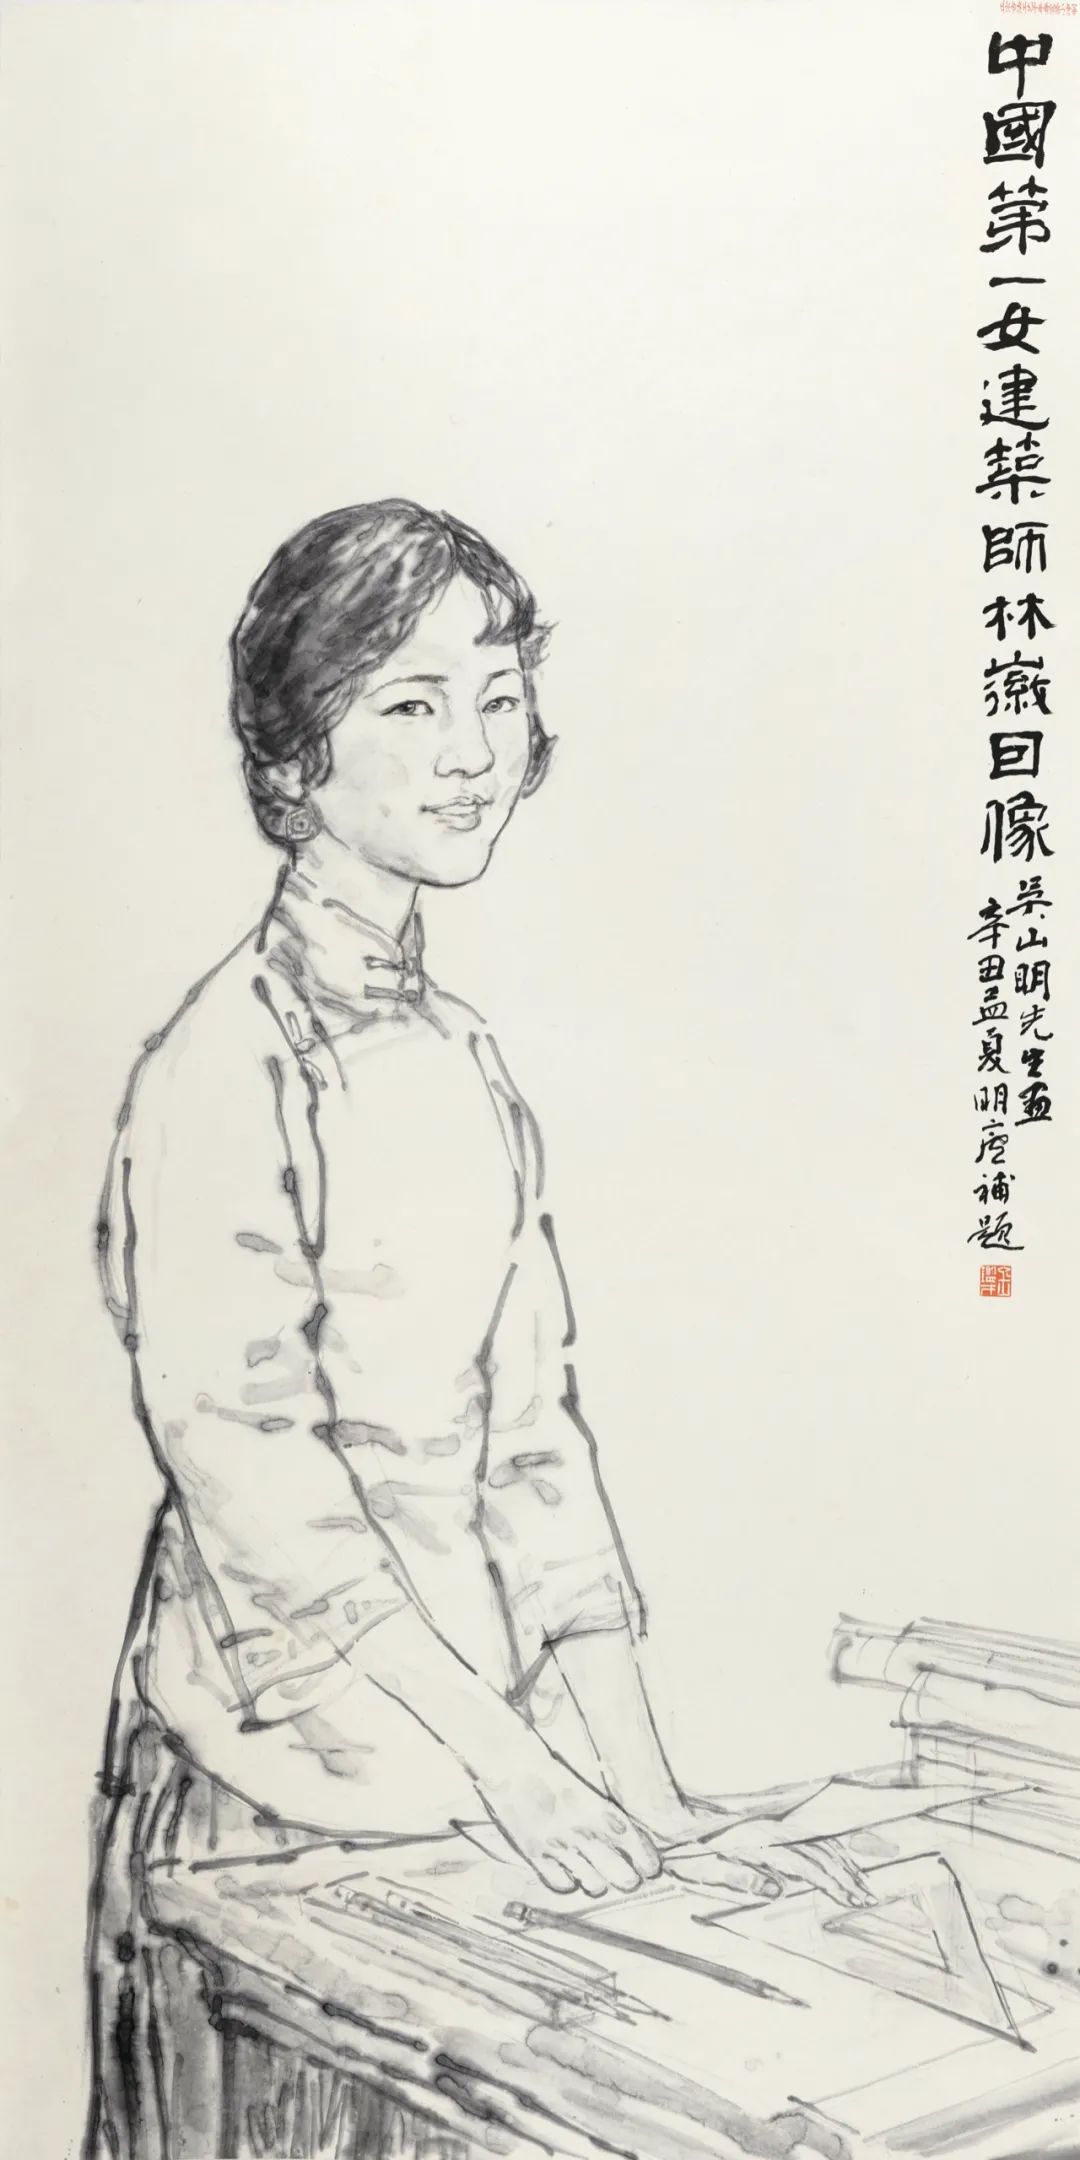 中國第一女建築師林徽因像
吳山明先生畫
辛丑孟夏明
補題